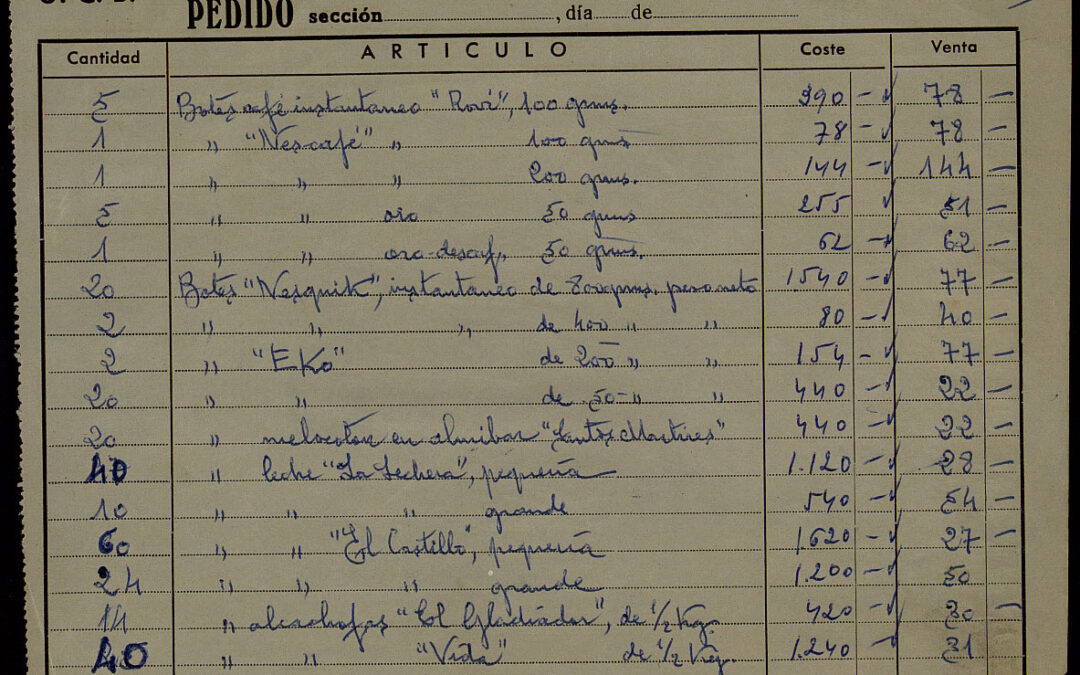 PEDIDO sección , día de
Cantidad ARTICULO Coste Venta
5 Botes café instantaneo "Rovi", 100 grms. 390 - 78 -
1 " "Nescafé" " 100 grms 78 - 78 -
1 " " " 200 grms. 144 - 144 -
5 " " oro 50 grms 255 51 -
1 " " oro-descaf,, 50 grms. 62 - 62 -
20 Botes "Nesquik", instantaneo de 800 grms. peso neto 1540 - 77 -
2 " " " de 400 " " 80 - 40 -
2 " "EKo" de 200 " " 154 - 77 -
20 " " de 50 - " " 440 - 22 -
20 " melocotón en almibar "Santos Martires" 440 - 22 -
40 " leche "La Lechera", pequeña 1.120 - 28 -
10 " " " grande 540 - 54 -
60 " " "El Castillo", pequeña 1.620 - 27 -
24 " " " grande 1.200 - 50 -
14 " alcachofas "El Gladiador", de 1/2 Kg. 420 - 30 -
40 " " "Vida" de 1/2 Kg. 1.240 - 31 -